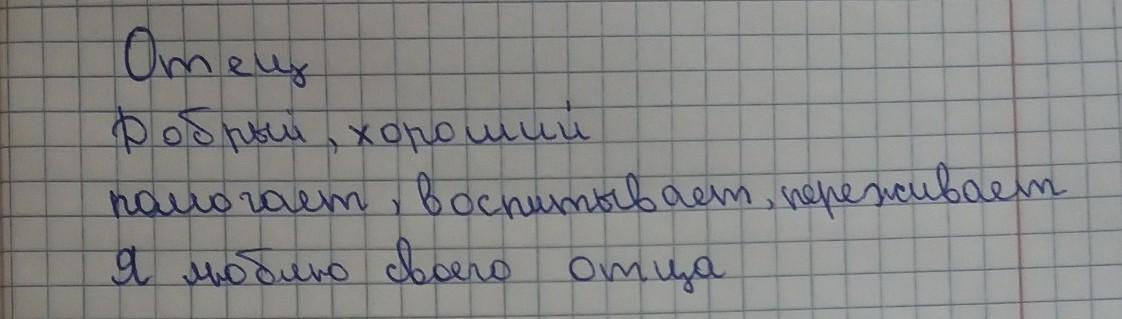 Отец
Добрый, хороший
помогает, воспитывает, переживает
Я люблю своего отца